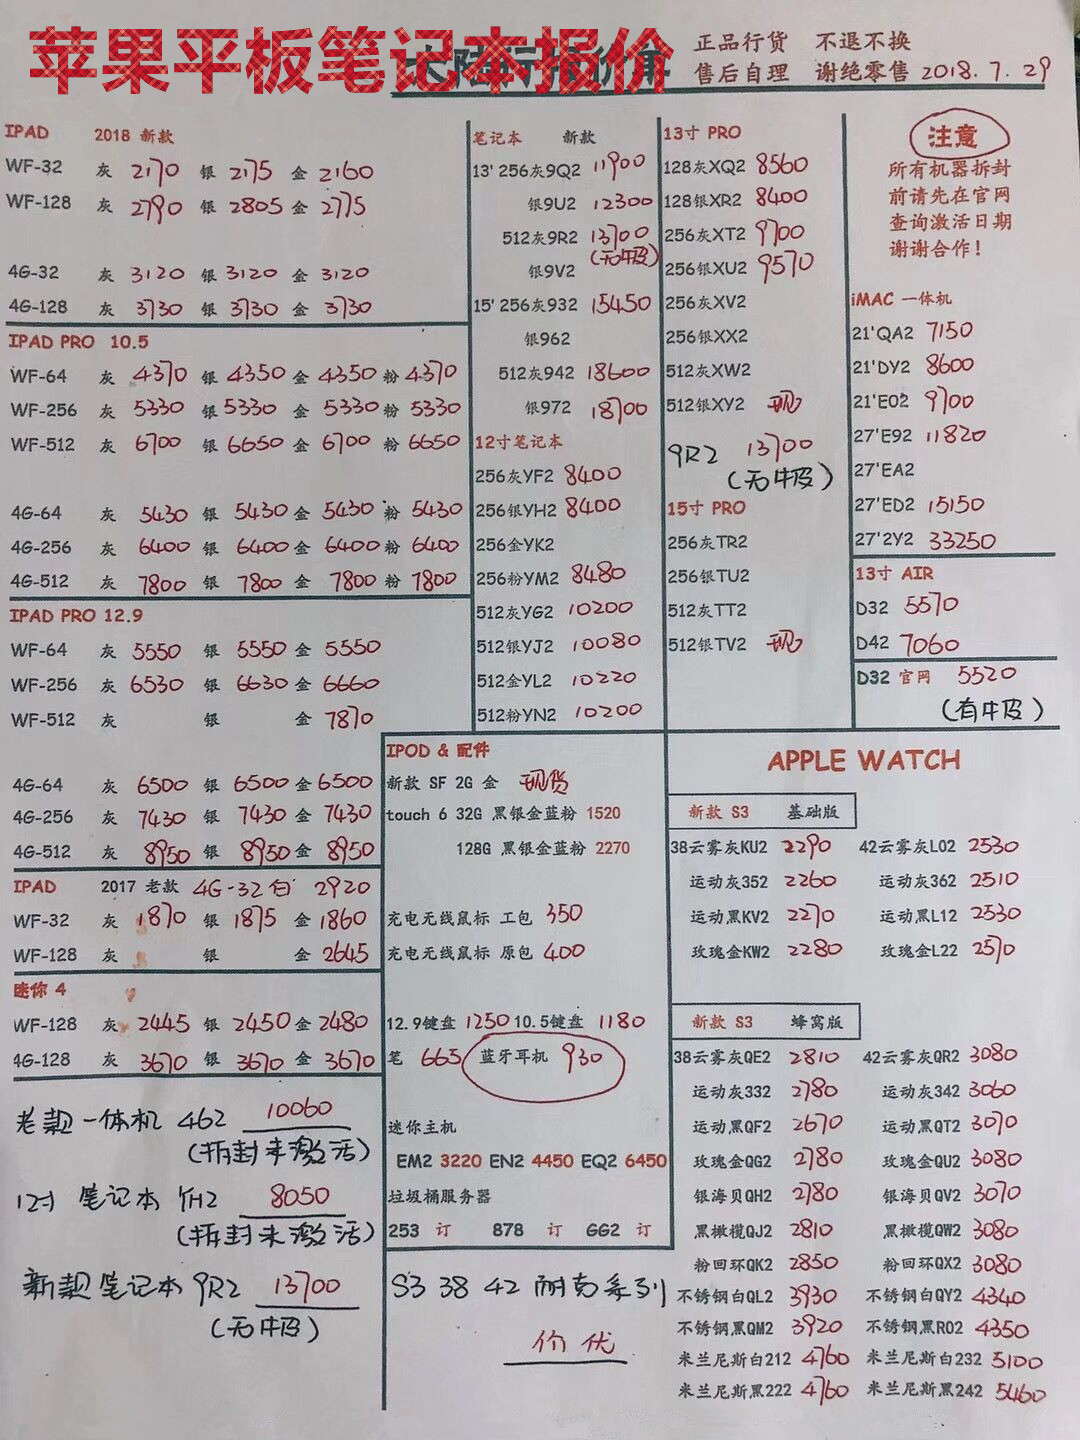 苹果平板笔记本报价
大陆行报价单
正品行货 不退不换
售后自理 谢绝零售 2018.7.29
IPAD 2018 新款
WF-32 灰 2170 银 2175 金 2160
WF-128 灰 2790 银 2805 金 2775
4G-32 灰 3120 银 3120 金 3120
4G-128 灰 3730 银 3730 金 3730
IPAD PRO 10.5
WF-64 灰 4370 银 4350 金 4350 粉 4370
WF-256 灰 5330 银 5330 金 5330 粉 5330
WF-512 灰 6700 银 6650 金 6700 粉 6650
4G-64 灰 5430 银 5430 金 5430 粉 5430
4G-256 灰 6400 银 6400 金 6400 粉 6400
4G-512 灰 7800 银 7800 金 7800 粉 7800
IPAD PRO 12.9
WF-64 灰 5550 银 5550 金 5550
WF-256 灰 6530 银 6630 金 6660
WF-512 灰 银 金 7870
4G-64 灰 6500 银 6500 金 6500
4G-256 灰 7430 银 7430 金 7430
4G-512 灰 8950 银 8950 金 8950
IPAD 2017 老款 4G-32 白 2920
WF-32 灰 1870 银 1875 金 1860
WF-128 灰 银 金 2645
迷你 4
WF-128 灰 2445 银 2450 金 2480
4G-128 灰 3670 银 3670 金 3670
老款一体机 462 10060
(拆封未激活)
12寸 笔记本 YH2 8050
(拆封未激活)
新款笔记本 9R2 13700
(无牛皮)
笔记本 新款
13' 256灰9Q2 11900
银9U2 12300
512灰9R2 13700
(无牛皮)
银9V2
15' 256灰932 15450
银962
512灰942 18600
银972 18700
12寸笔记本
256灰YF2 8400
256银YH2 8400
256金YK2
256粉YM2 8480
512灰YG2 10200
512银YJ2 10080
512金YL2 10220
512粉YN2 10200
13寸 PRO
128灰XQ2 8560
128银XR2 8400
256灰XT2 9700
256银XU2 9570
256灰XV2
256银XX2
512灰XW2
512银XY2 现
9R2 13700
(无牛皮)
15寸 PRO
256灰TR2
256银TU2
512灰TT2
512银TV2 现
注意
所有机器拆封
前请先在官网
查询激活日期
谢谢合作！
iMAC 一体机
21'QA2 7150
21'DY2 8600
21'E02 9700
27'E92 11820
27'EA2
27'ED2 15150
27'2Y2 33250
13寸 AIR
D32 5570
D42 7060
D32 官网 5520
(有牛皮)
IPOD & 配件
新款 SF 2G 金 现货
touch 6 32G 黑银金蓝粉 1520
128G 黑银金蓝粉 2270
充电无线鼠标 工包 350
充电无线鼠标 原包 400
12.9键盘 1250 10.5键盘 1180
笔 665 蓝牙耳机 930
迷你主机
EM2 3220 EN2 4450 EQ2 6450
垃圾桶服务器
253 订 878 订 GG2 订
S3 38 42 耐克系列
价优
APPLE WATCH
新款 S3 基础版
38云雾灰KU2 2290 42云雾灰L02 2530
运动灰352 2260 运动灰362 2510
运动黑KV2 2270 运动黑L12 2530
玫瑰金KW2 2280 玫瑰金L22 2570
新款 S3 蜂窝版
38云雾灰QE2 2810 42云雾灰QR2 3080
运动灰332 2780 运动灰342 3060
运动黑QF2 2670 运动黑QT2 3070
玫瑰金QG2 2780 玫瑰金QU2 3080
银海贝QH2 2780 银海贝QV2 3070
黑橄榄QJ2 2810 黑橄榄QW2 3080
粉回环QK2 2850 粉回环QX2 3080
不锈钢白QL2 3930 不锈钢白QY2 4340
不锈钢黑QM2 3920 不锈钢黑R02 4350
米兰尼斯白212 4760 米兰尼斯白232 5100
米兰尼斯黑222 4760 米兰尼斯黑242 5460